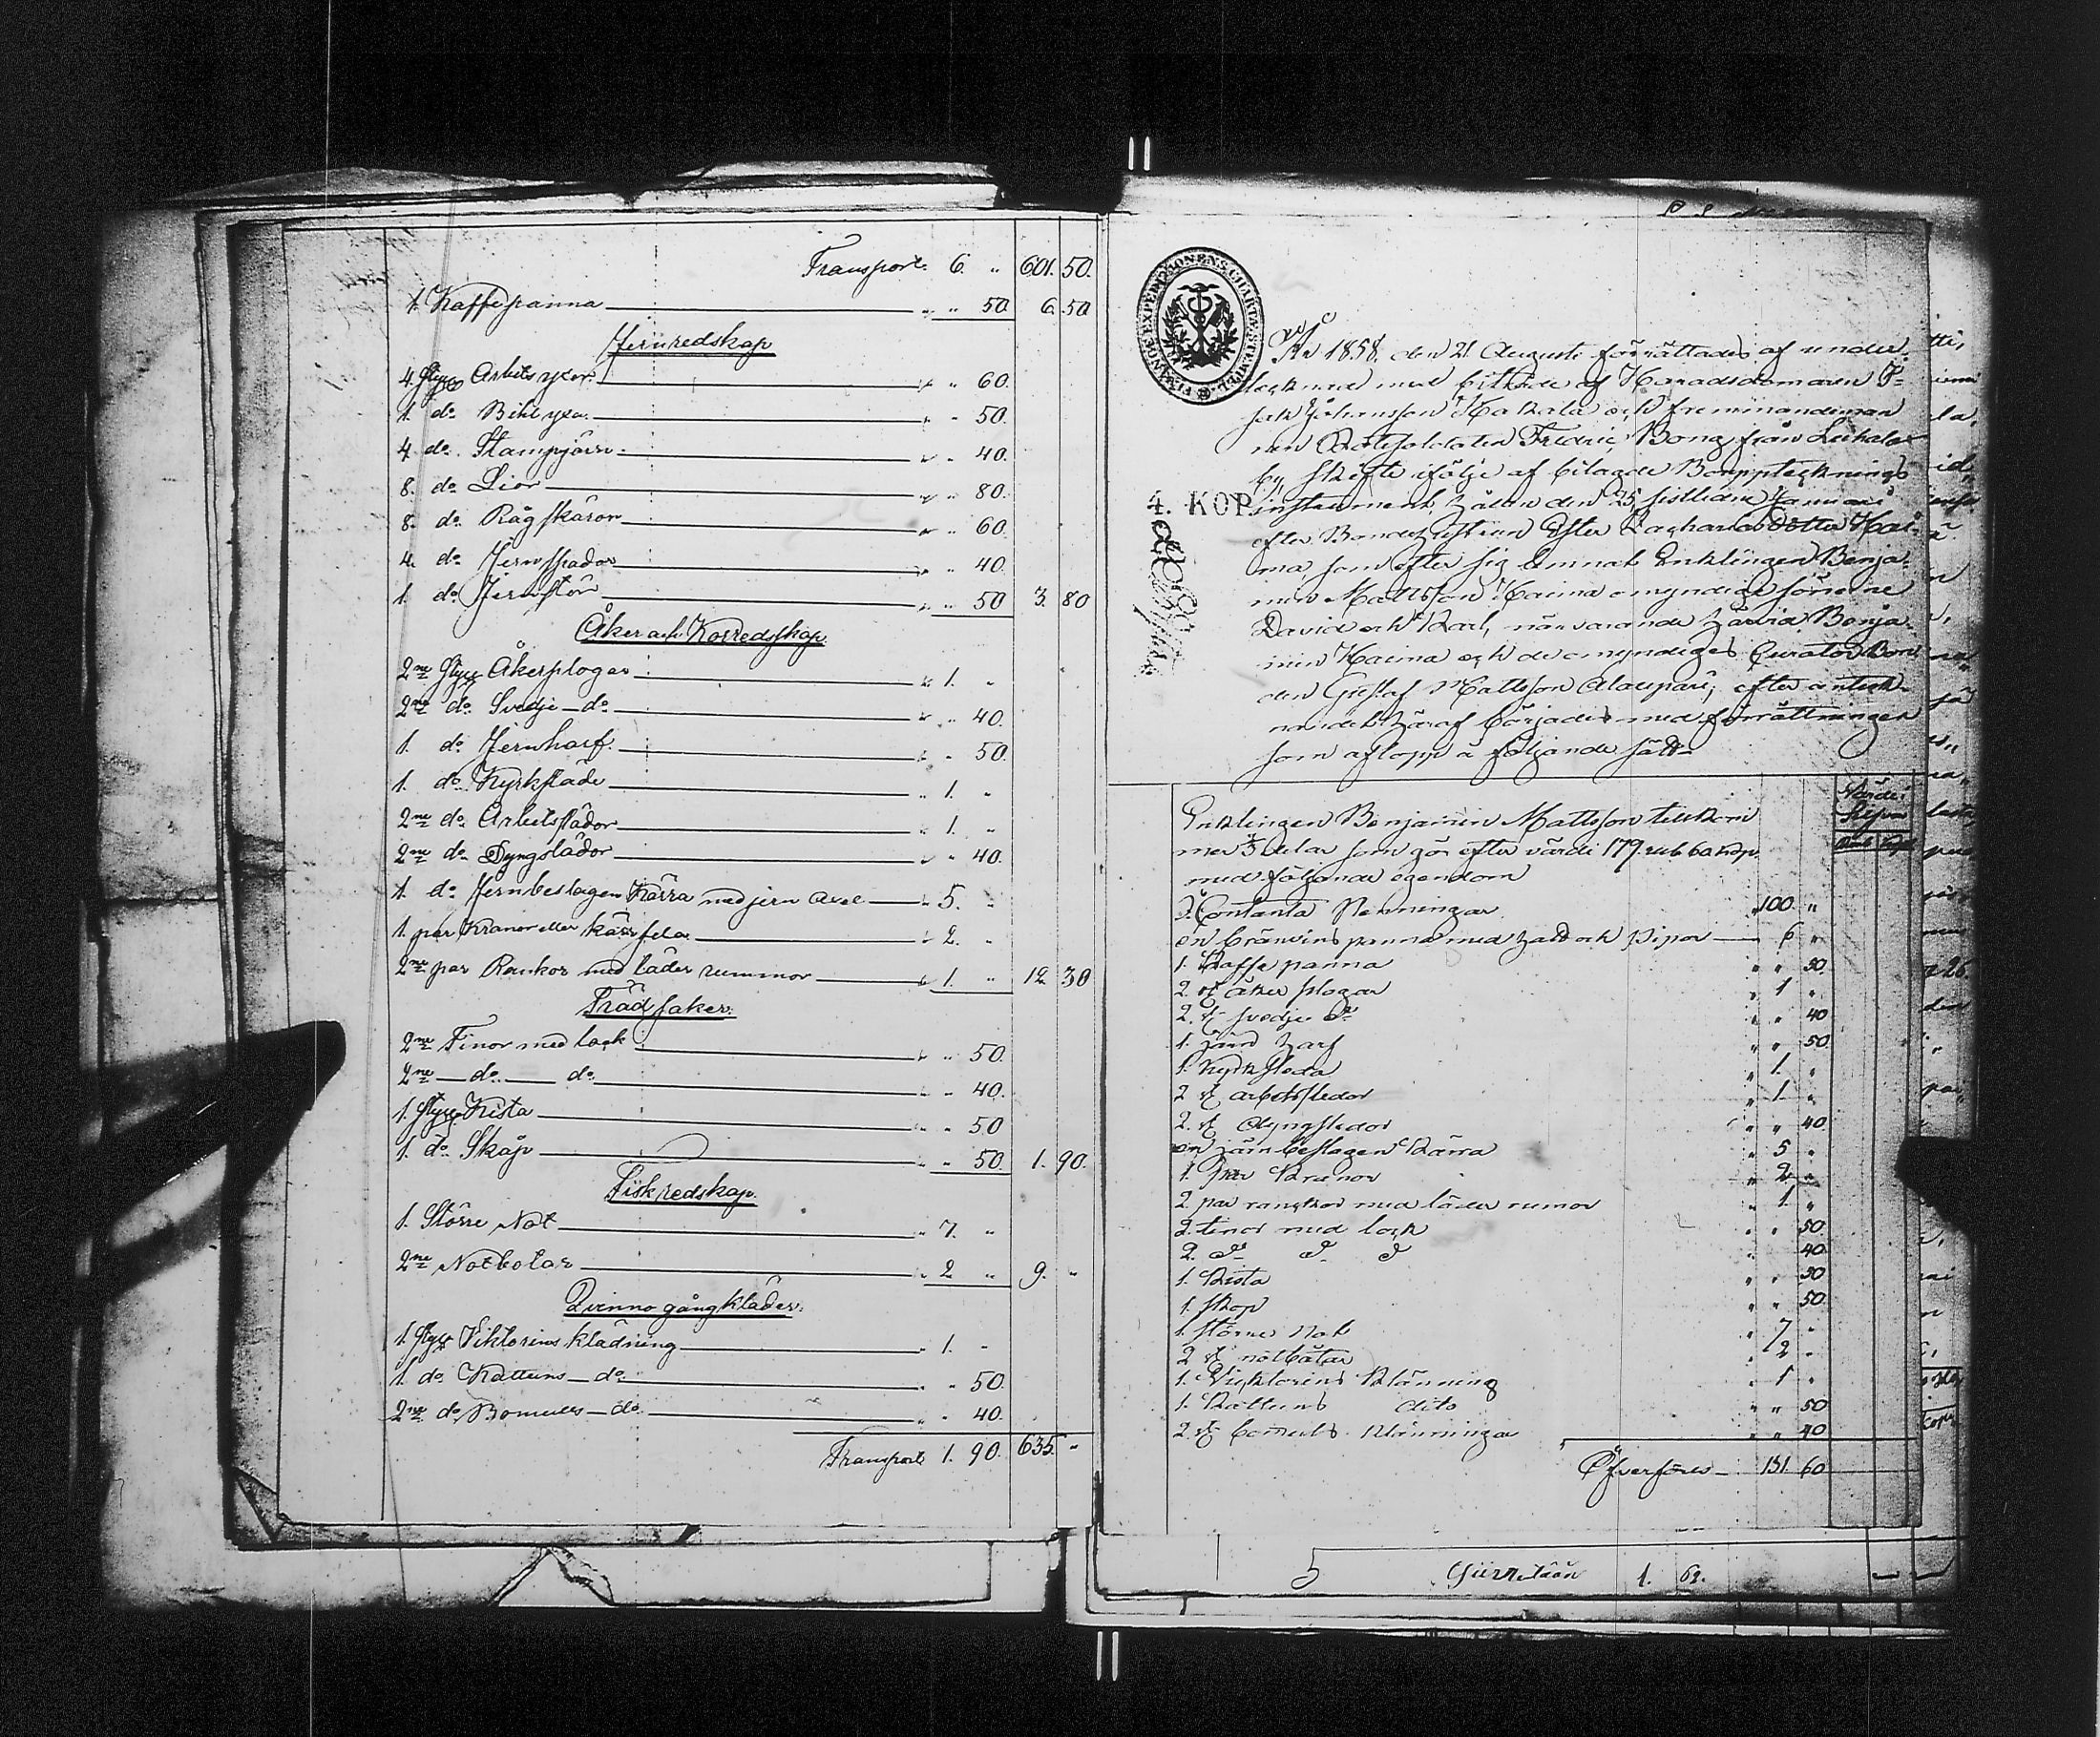 Transport. 6. " 601. 50.
1. Kaffepanna " " 50 6. 50
Jernredskap
4. Styck Arbets yxor " " 60.
1. do Bihl yxa " " 50.
4. do Stampjärn " " 40.
8. do Lior " " 80.
8. do Rågskäror " " 60.
4. do Jernspador " " 40.
1. do Jernstör " " 50 3. 80
Åker och Körredskap
2ne Styck Åkerplogar " 1. "
2ne do Svedje do " " 40.
1. do Jernharf " " 50.
1. do Kyrksläde " 1. "
2ne do Arbetsslädor " 1. "
2ne do Dyngslädor " " 40.
1. do Jernbeslagen Kärra med jern axel " 5. "
1. par Kranor eller kärrselar " 2. "
2ne par Rankor med läder rummor " 1. " 12 30
Träd saker.
2ne Tinor med lock " " 50.
2ne do do " " 40.
1. Styck Kista " " 50
1. do Skåp " " 50 1. 90.
Fiskredskap.
1. Större Not " 7. "
2ne Notbotar " 2 " 9. "
Qvinno gångkläder.
1. Styck Viktorins klädning " 1. "
1. do Kattuns do " " 50.
2ne do Bomulls do " " 40.
Transport 1. 90. 635. "
FINANCE EXPEDITIONENS CHARTÆ STEMPEL
4. KOP.
År 1858. den 21 Augusti förrättades af under
tecknad med biträde af Häradsdomaren
Johansson Hakala och fremmandeman
nen Båtssoldaten Fredric Bong från
by Skifte ifölje af bilagde Bouppteckning
instrument, hållen den 25 sistlidne Januari
efter Bondehustrun Ester Zachariasdotter
ma, som efter sig lemnat Enklingen Benja
min Mattsson omyndige sönerne
David och Karl, närvarande härvid Benja
min och de omyndiges Curator Bon
den Gustaf Mattsson Alaupari, efter anteck
nandet häraf börjades med förrättningen
som aflopp å följande sätt
Enklingen Benjamin Mattsson tillkom
mer 1/3 delar som gör efter värdi 179. rub 60 kop
med följande egendom
Contanta Penningar " 100. "
en bränvins panna med hatt och pipor 6 "
1. Kaffe panna " " 50.
2. st åker plogar " 1 "
2. st svedje do " " 40
1. järn harf " " 50.
1. Kyrksleda " 1. "
2 st arbetssledor " 1 "
2. st dyngsledor " " 40.
en järnbeslagen Kärra " 5 "
1. par Kranor " 2 "
2 par rankor med läder rumor " 1. "
2 tinor med lock " " 50.
2. do do do " " 40.
1. Kista " " 50
1. skop " " 50.
1. större Not " 7 "
2 st notbåtar " 2 "
1. Vicktorins Klänning " 1 "
1. Kattuns dito " " 50
2. st bomuls Klänningar " " 40
Öfverföres 131 60
1. 62.